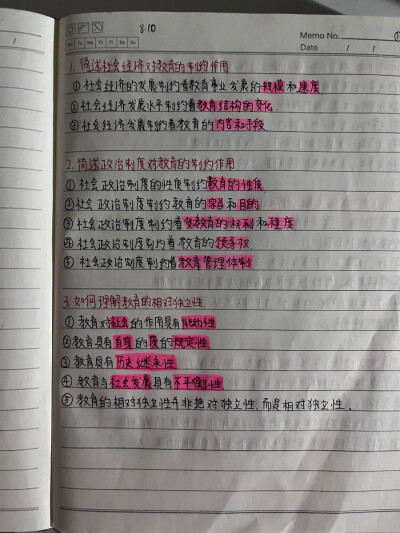 8.10
Memo No.
Mo Tu We Th Fr Sa Su
Date / /
1. 简述社会经济对教育的制约作用
① 社会经济的发展制约着教育事业发展的规模和速度
② 社会经济发展水平制约着教育结构的变化
③ 社会经济发展制约着教育的内容和手段
2. 简述政治制度对教育的制约作用
① 社会政治制度的性质制约教育的性质
② 社会政治制度制约教育的宗旨和目的
③ 社会政治制度制约着受教育的权利和程度
④ 社会政治制度制约着教育的领导权
⑤ 社会政治制度制约着教育管理体制
3. 如何理解教育的相对独立性
① 教育对社会的作用具有能动性
② 教育具有自身的质的规定性
③ 教育具有历史继承性
④ 教育与社会发展具有不平衡性
⑤ 教育的相对独立性并非绝对独立性,而是相对独立性.